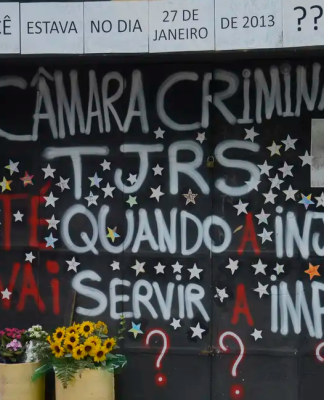 CÊ ESTAVA NO DIA 27 DE JANEIRO DE 2013 ??
CÂMARA CRIMINA
TJRS
TÉ QUANDO A INJ
VAI SERVIR A IMP
? ? ?